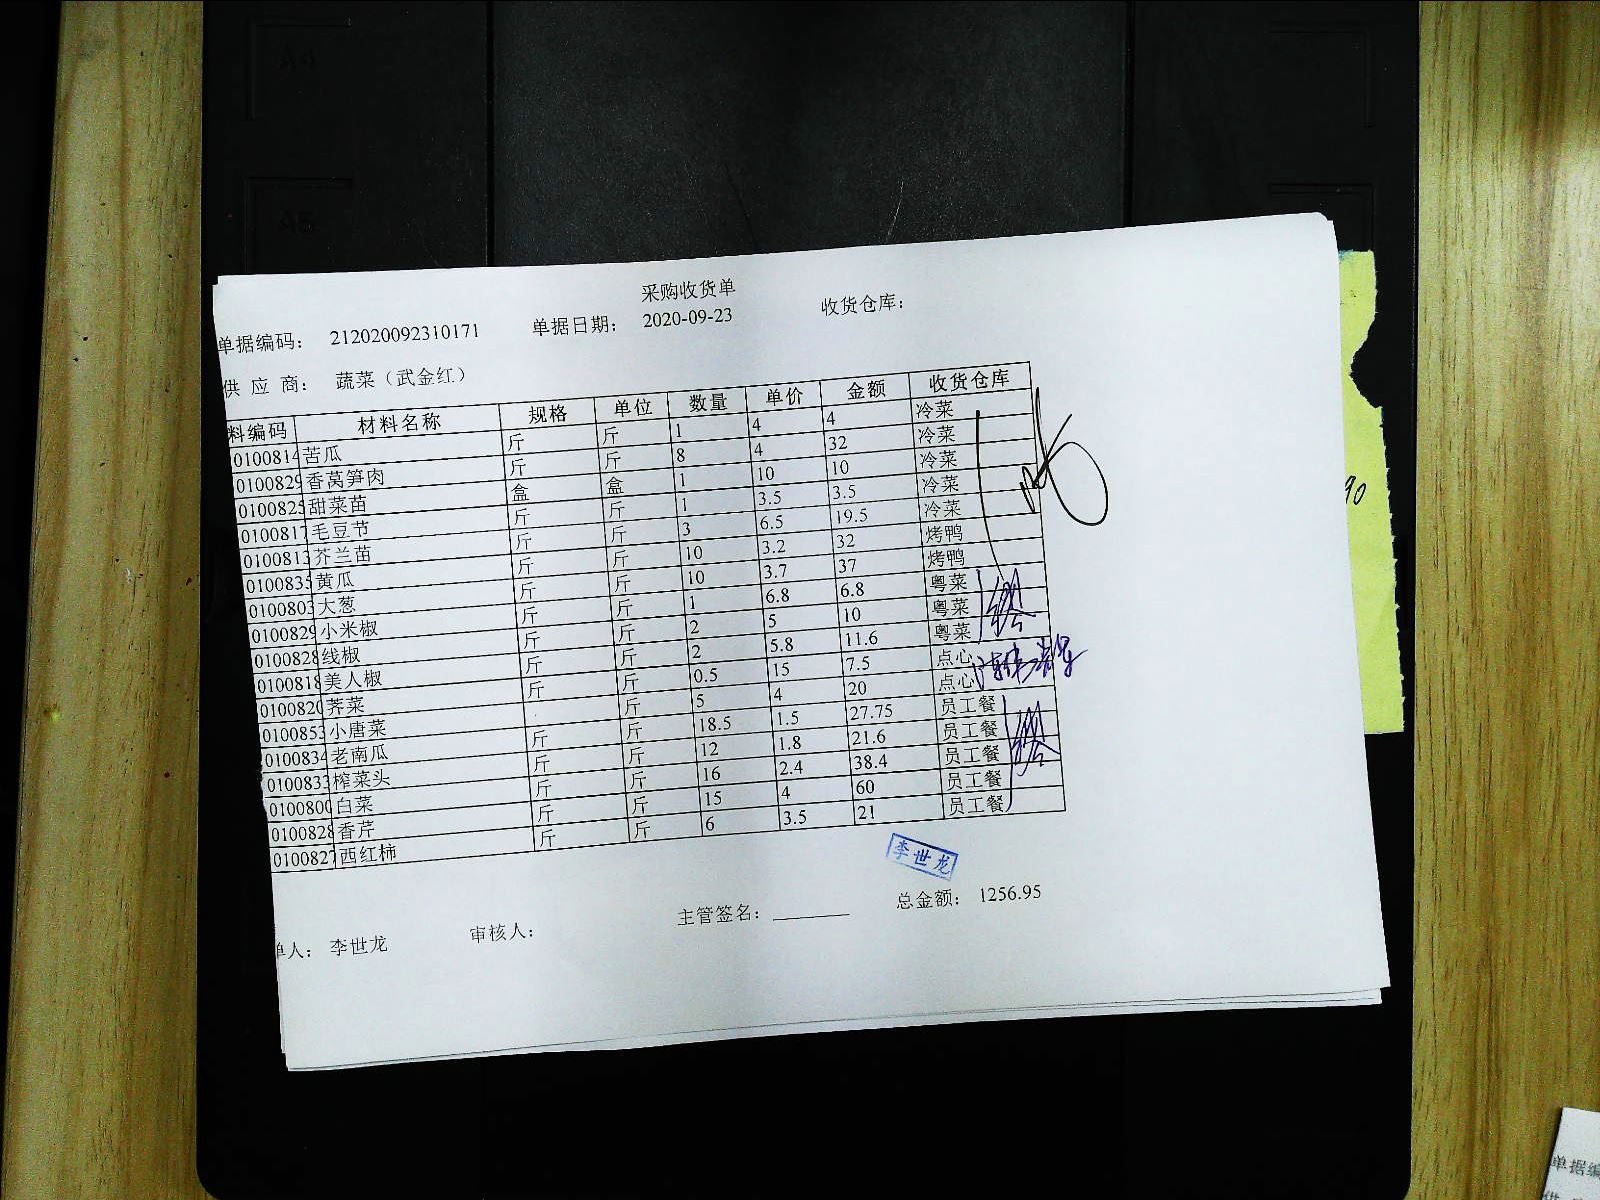 采购收货单
单据编码： 212020092310171 单据日期： 2020-09-23 收货仓库：
供 应 商： 蔬菜（武金红）
料编码 材料名称 规格 单位 数量 单价 金额 收货仓库
0100814 苦瓜 斤 斤 1 4 4 冷菜
0100829 香莴笋肉 斤 斤 8 4 32 冷菜
0100825 甜菜苗 盒 盒 1 10 10 冷菜
0100817 毛豆节 斤 斤 1 3.5 3.5 冷菜
0100813 芥兰苗 斤 斤 3 6.5 19.5 冷菜
0100835 黄瓜 斤 斤 10 3.2 32 烤鸭
0100803 大葱 斤 斤 10 3.7 37 烤鸭
0100829 小米椒 斤 斤 1 6.8 6.8 粤菜
0100828 线椒 斤 斤 2 5 10 粤菜
0100818 美人椒 斤 斤 2 5.8 11.6 粤菜
0100820 荠菜 斤 斤 0.5 15 7.5 点心
0100853 小唐菜 斤 5 4 20 点心
0100834 老南瓜 斤 斤 18.5 1.5 27.75 员工餐
0100833 榨菜头 斤 斤 12 1.8 21.6 员工餐
0100800 白菜 斤 斤 16 2.4 38.4 员工餐
0100828 香芹 斤 斤 15 4 60 员工餐
0100827 西红柿 斤 斤 6 3.5 21 员工餐
李世龙
单人： 李世龙 审核人： 主管签名： 总金额： 1256.95
90
单据编